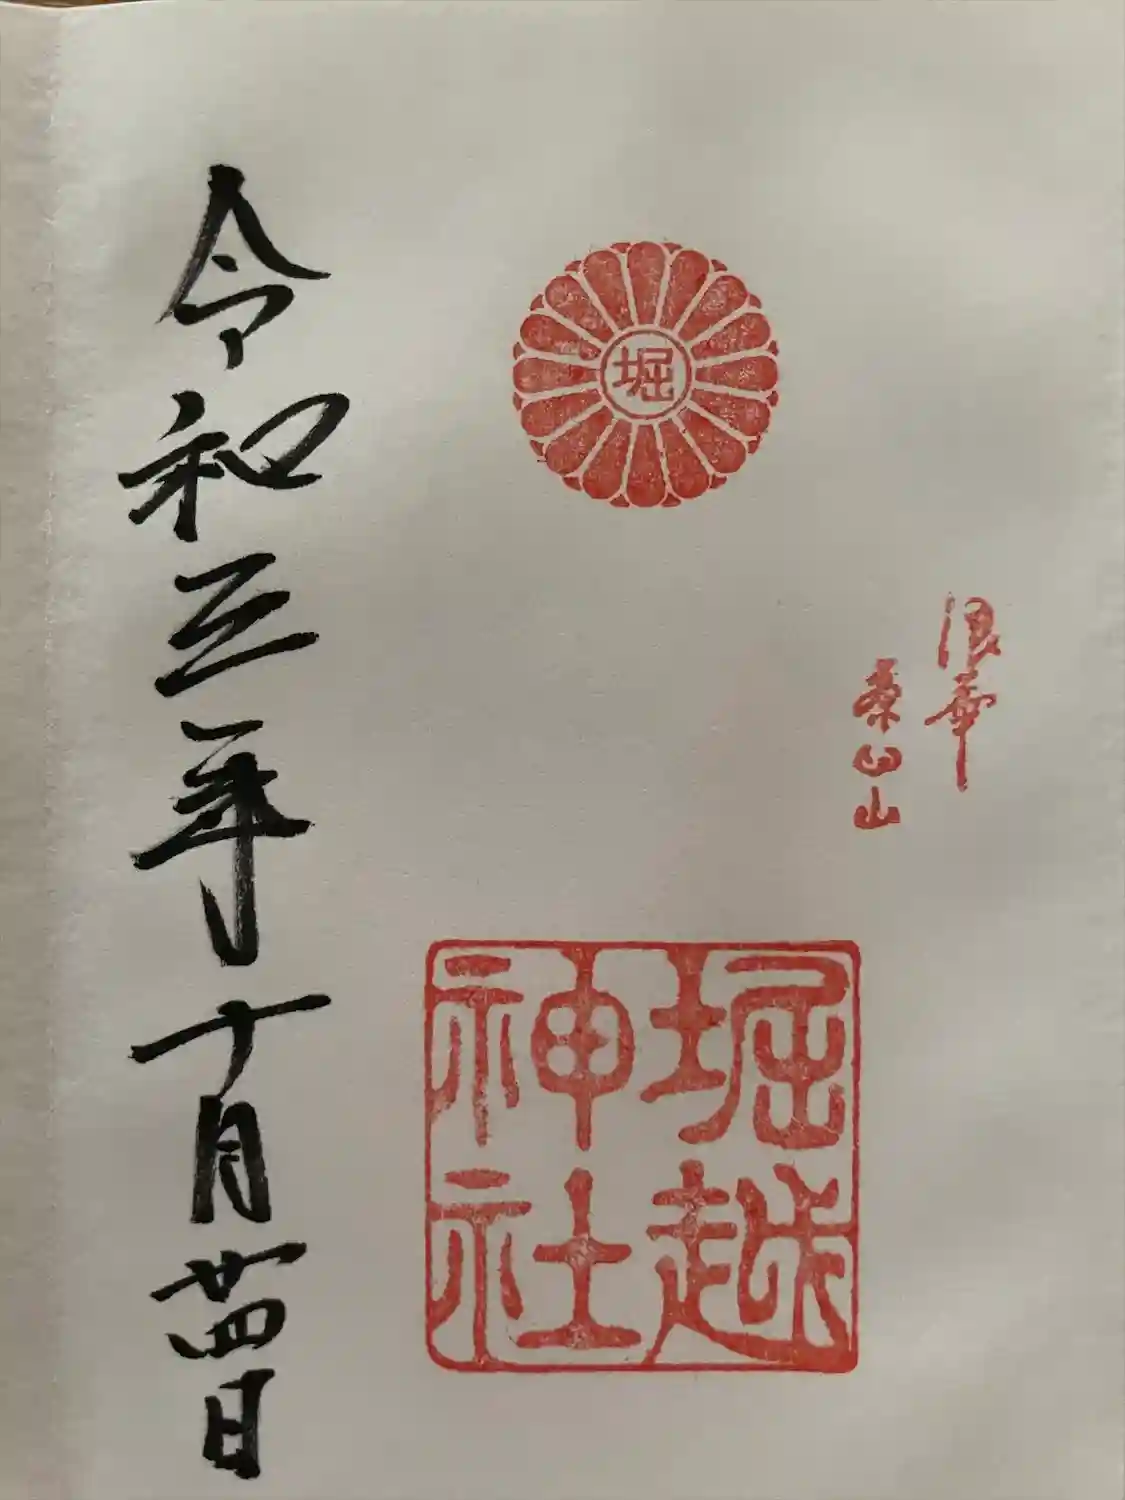 堀
浪華
茶臼山
堀越
神社
令和三年十月廿四日